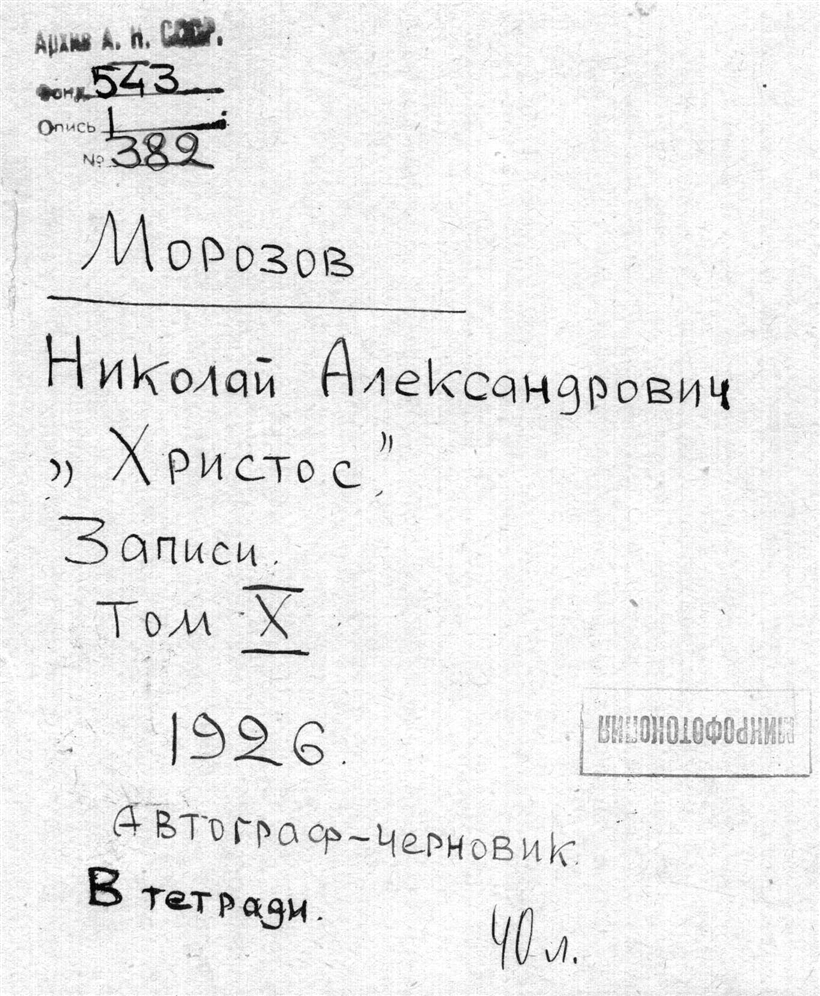 Архив А. Н. СССР.
Фонд 543
Опись 1
№ 382
Морозов
Николай Александрович
„Христос"
Записи.
Том X
1926.
МИКРОФОТОКОПИЯ
Автограф-черновик
В тетради.
40 л.